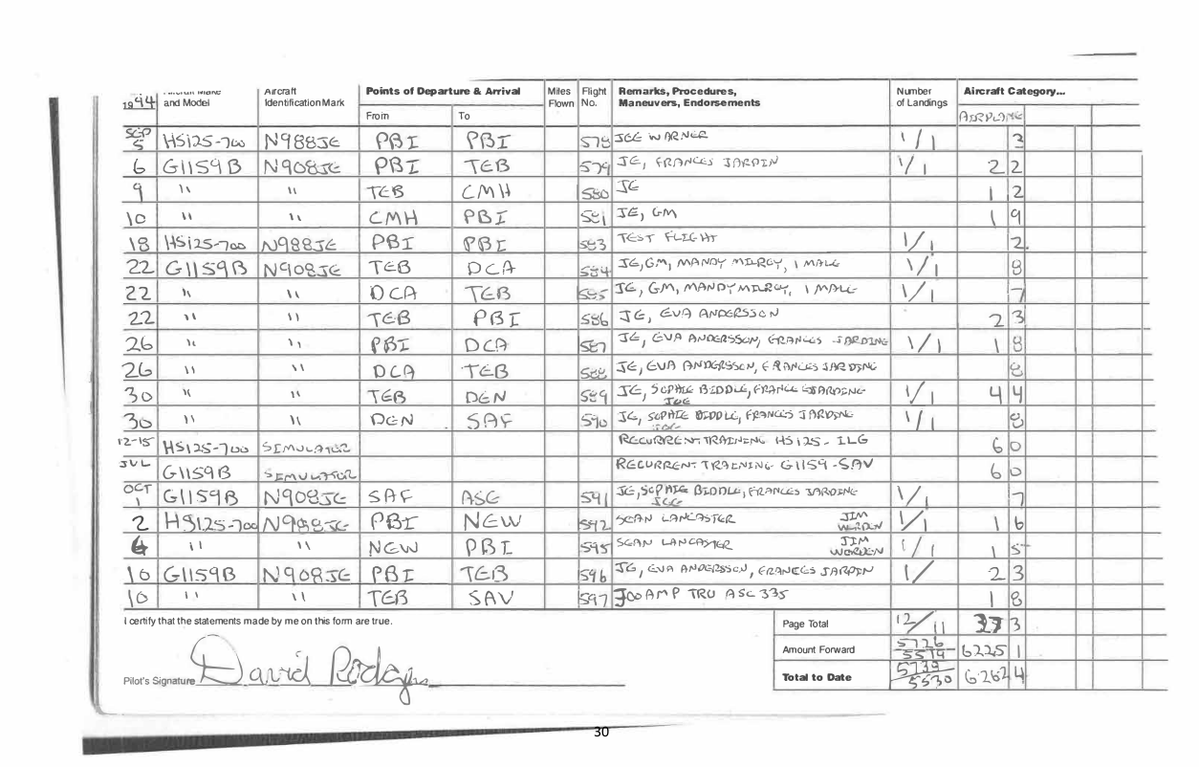 1994 Aircraft Make and Model Aircraft Identification Mark Points of Departure & Arrival From To Miles Flown Flight No. Remarks, Procedures, Maneuvers, Endorsements Number of Landings Aircraft Category... AIRPLANE
SEP 5 HS125-700 N988JE PBI PBI 578 JOE WARNER 1/1 3
6 G1159B N908JE PBI TEB 579 JE, FRANCES JARDIN 1/1 2 2
9 " " TEB CMH 580 JE 1 2
10 " " CMH PBI 581 JE, GM 1 9
18 HS125-700 N988JE PBI PBI 583 TEST FLIGHT 1/1 2
22 G1159B N908JE TEB DCA 584 JE, GM, MANDY 1 MALE 1/1 8
22 " " DCA TEB 585 JE, GM, MANDY 1 MALE 1/1 7
22 " " TEB PBI 586 JE, EVA ANDERSSON 2 3
26 " " PBI DCA 587 JE, EVA ANDERSSON, FRANCES JARDING 1/1 1 8
26 " " DCA TEB 588 JE, EVA ANDERSSON, FRANCES JARDING 8
30 " " TEB DEN 589 JE, SOPHIE BIDDLE, FRANCES JARDING JOE 1/1 4 4
30 " " DEN SAF 590 JE, SOPHIE BIDDLE, FRANCES JARDING 1/1 8
12-15 HS125-700 SIMULATOR RECURRENT TRAINING HS125- ILG 6 0
JUL G1159B SIMULATOR RECURRENT TRAINING G1159-SAV 6 0
OCT 1 G1159B N908JE SAF ASE 591 JE, SOPHIE BIDDLE, FRANCES JARDING JOE 1/1 7
2 HS125-700 N988JE PBI NEW 592 SEAN LANCASTER JIM WERDEN 1/1 1 6
4 " " NEW PBI 595 SEAN LANCASTER JIM WORDEN 1/1 1 5
10 G1159B N908JE PBI TEB 596 JE, EVA ANDERSSON, FRANCES JARDIN 1/ 2 3
10 " " TEB SAV 597 300 AMP TRU ASC 335 1 8
I certify that the statements made by me on this form are true. Page Total 12/11 37 3
Amount Forward 5726/5519 6225 1
Pilot's Signature David Rodgers Total to Date 5738/5530 6262 4
30